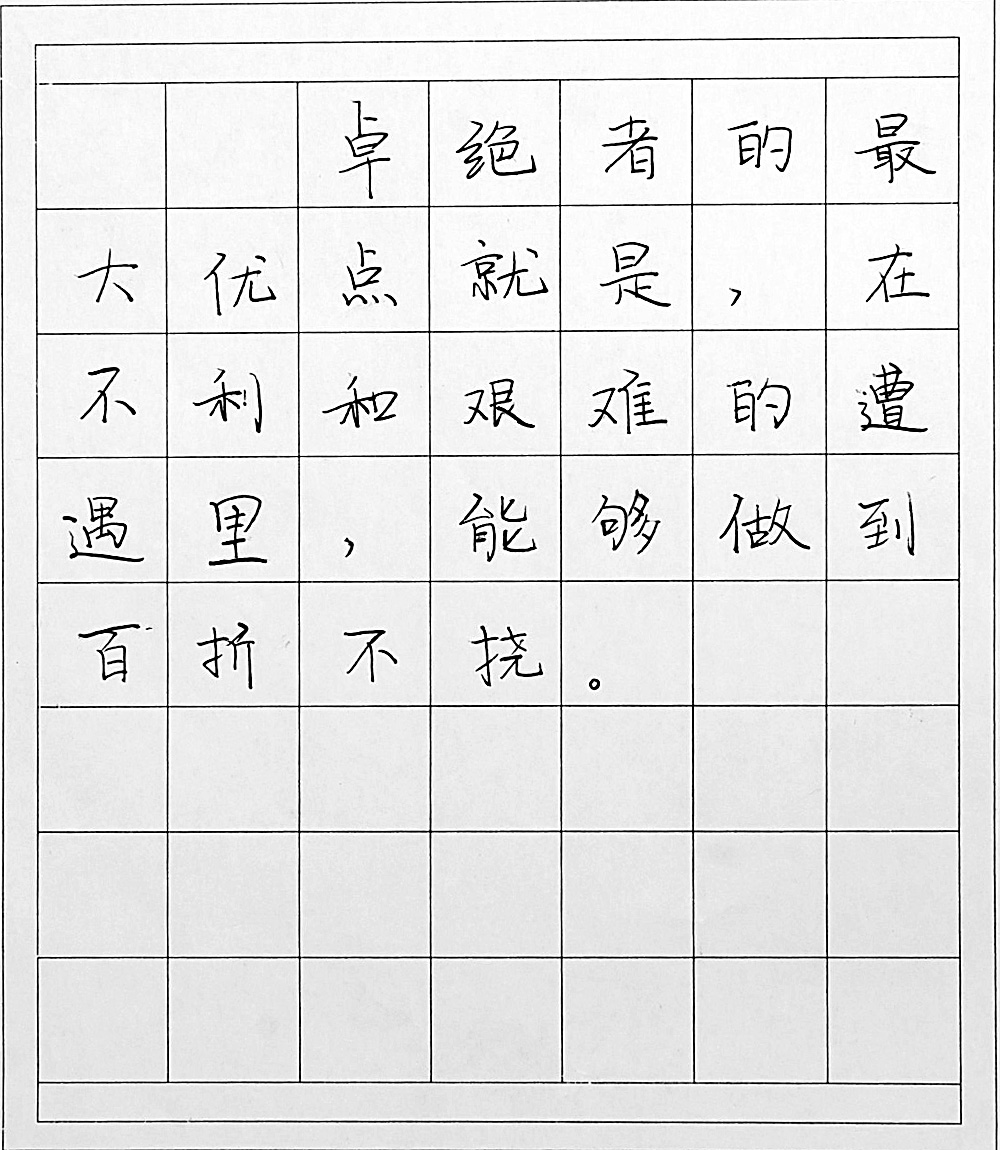 卓绝者的最
大优点就是，在
不利和艰难的遭
遇里，能够做到
百折不挠。